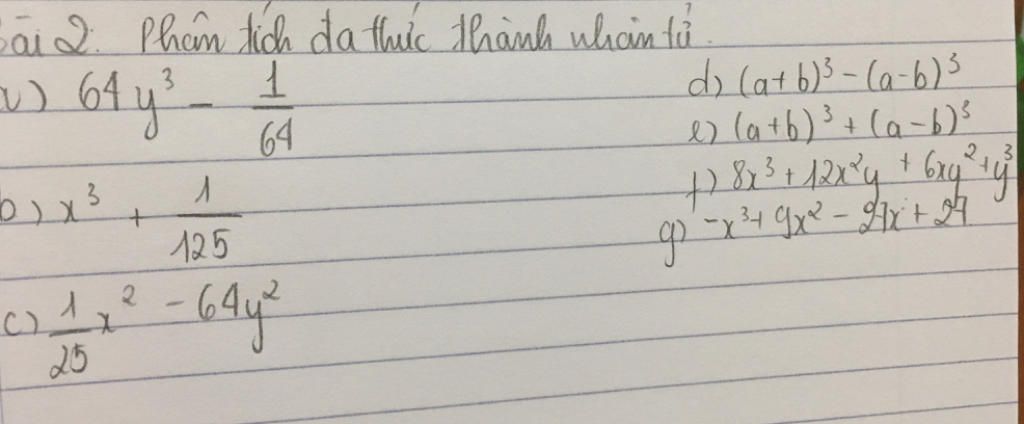 bài 2. Phân tích đa thức thành nhân tử.
a) 64y³ - 1/64
b) x³ + 1/125
c) 1/25 x² - 64y²
d) (a+b)³ - (a-b)³
e) (a+b)³ + (a-b)³
f) 8x³ + 12x²y + 6xy² + y³
g) -x³ + 9x² - 27x + 27